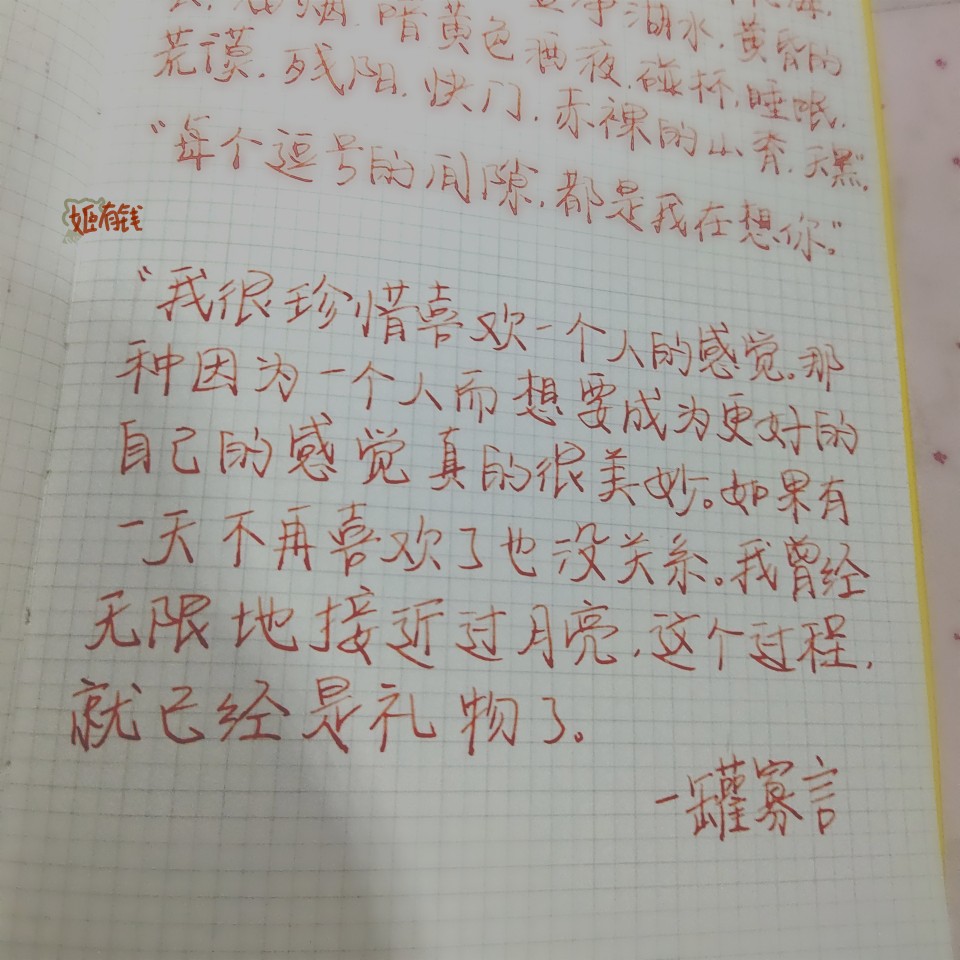 烟.暗黄色酒夜.碰杯.睡眠.
湖水.黄昏的
荒谟.残阳.快门.赤裸的山脊.天黑"
"每个逗号的间隙.都是我在想你."
姬有钱
"我很珍惜喜欢一个人的感觉。那
种因为一个人而想要成为更好的
自己的感觉真的很美妙。如果有
一天不再喜欢了也没关系。我曾经
无限地接近过月亮.这个过程,
就已经是礼物了。
一罐寡言